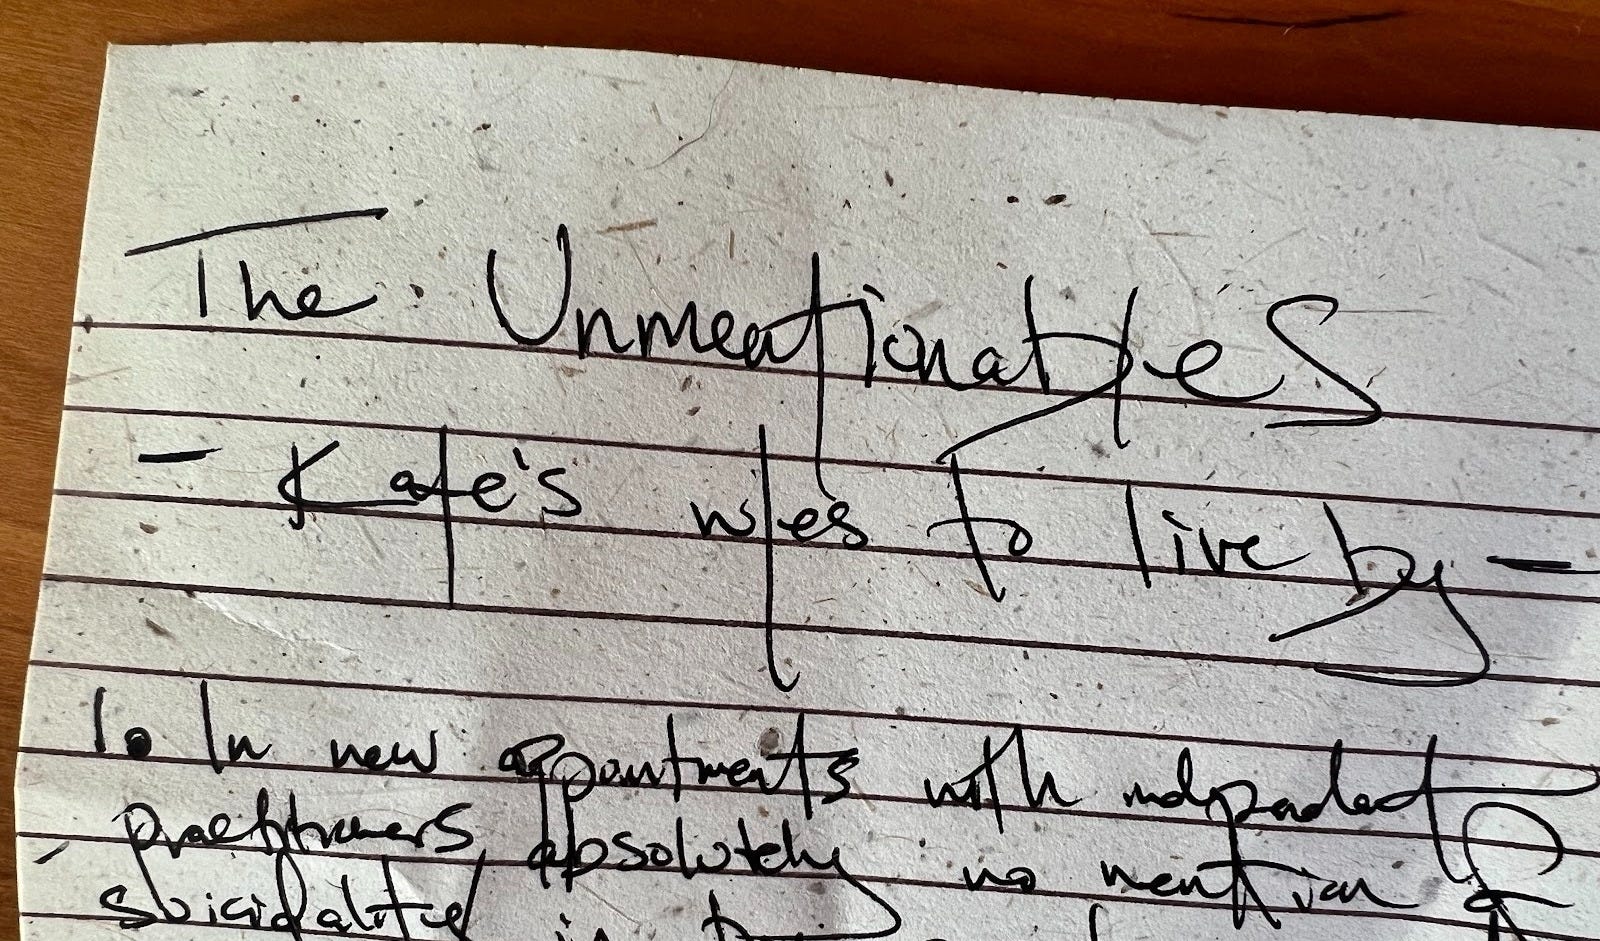 The Unmentionables
- Kate's rules to live by -
1. In new appointments with independent
practitioners, absolutely no mention of
suicidality in